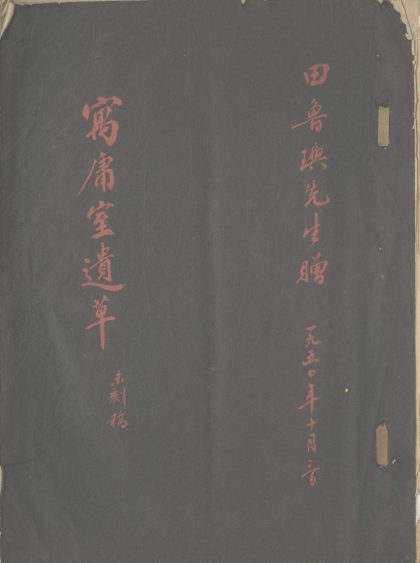 田魯璵先生贈 一九五〇年十月
寓庸室遺草 未刻稿